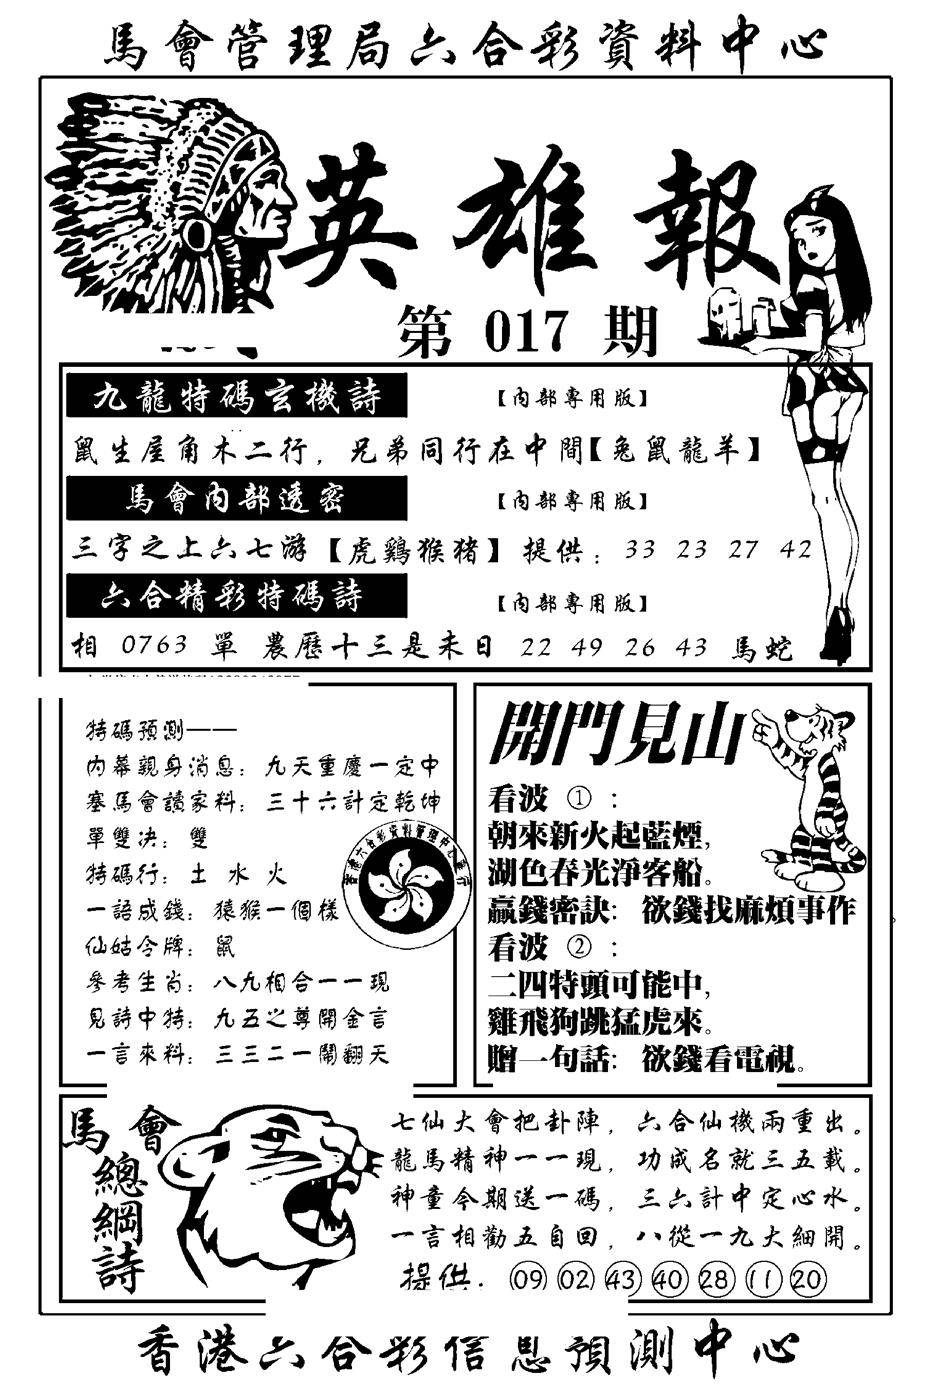 馬會管理局六合彩資料中心
英雄報
第 017 期
九龍特碼玄機詩 【內部專用版】
鼠生屋角木二行，兄弟同行在中間【兔鼠龍羊】
馬會內部透密 【內部專用版】
三字之上六七游【虎鷄猴猪】提供：33 23 27 42
六合精彩特碼詩 【內部專用版】
相 0763 單 農歷十三是未日 22 49 26 43 馬蛇
特碼預測——
內幕親身消息：九天重慶一定中
塞馬會讀家料：三十六計定乾坤
單雙决：雙
特碼行：土 水 火
一語成錢：猿猴一個樣
仙姑令牌：鼠
參考生肖：八九相合一一現
見詩中特：九五之尊開金言
一言來料：三三二一鬧翻天
開門見山
看波 ①：
朝來新火起藍煙，
湖色春光淨客船。
贏錢密訣：欲錢找麻煩事作
看波 ②：
二四特頭可能中，
雞飛狗跳猛虎來。
贈一句話：欲錢看電視。
馬會
總綱詩
七仙大會把卦陣，六合仙機兩重出。
龍馬精神一一現，功成名就三五載。
神童今期送一碼，三六計中定心水。
一言相勸五自回，八從一九大細開。
提供：09 02 43 40 28 11 20
香港六合彩信息預測中心